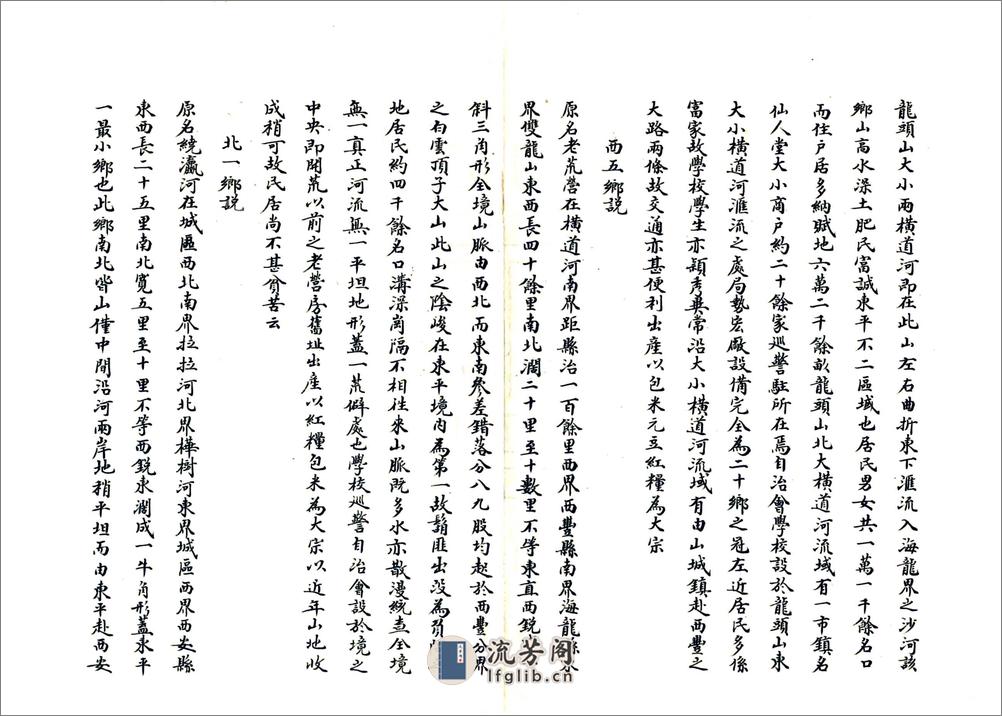 龍頭山大小兩橫道河即在此山左右曲折東下滙流入海龍界之沙河該
鄉山高水深土肥民富誠東平不二區域也居民男女共一萬一千餘名口
而住戶居多納賦地六萬二千餘畝龍頭山北大橫道河流域有一市鎮名
仙人堂大小商戶約二十餘家巡警駐所在焉自治會學校設於龍頭山東
大小橫道河滙流之處局勢宏廠設備完全為二十鄉之冠左近居民多係
富家故學校學生亦穎秀異常沿大小橫道河流域有由山城鎮赴西豐之
大路兩條故交通亦甚便利出產以包米元豆紅糧為大宗
西五鄉説
原名老荒營在橫道河南界距縣治一百餘里西界西豐縣南界海龍縣東
界雙龍山東西長四十餘里南北濶二十里至十數里不等東直西鋭
斜三角形全境山脈由西北而東南參差錯落分八九股均起於西豐分界
之白雲頂子大山此山之陰峻在東平境内為第一故鬍匪出沒為
地居民約四千餘名口溝深崗隔不相往來山脈既多水亦散漫統查全境
無一真正河流無一平坦地形蓋一荒僻處也學校巡警自治會設於境之
中央即開荒以前之老營房舊址出產以紅糧包米為大宗以近年山地收
成稍可故民居尚不甚貧苦云
北一鄉説
原名繞瀛河在城區西北南界拉拉河北界樺樹河東界城區西界西安縣
東西長二十五里南北寬五里至十里不等西鋭東濶成一牛角形蓋東平
一最小鄉也此鄉南北皆山僅中間沿河兩岸地稍平坦而由東平赴西安
流芳阁
lfglib.cn